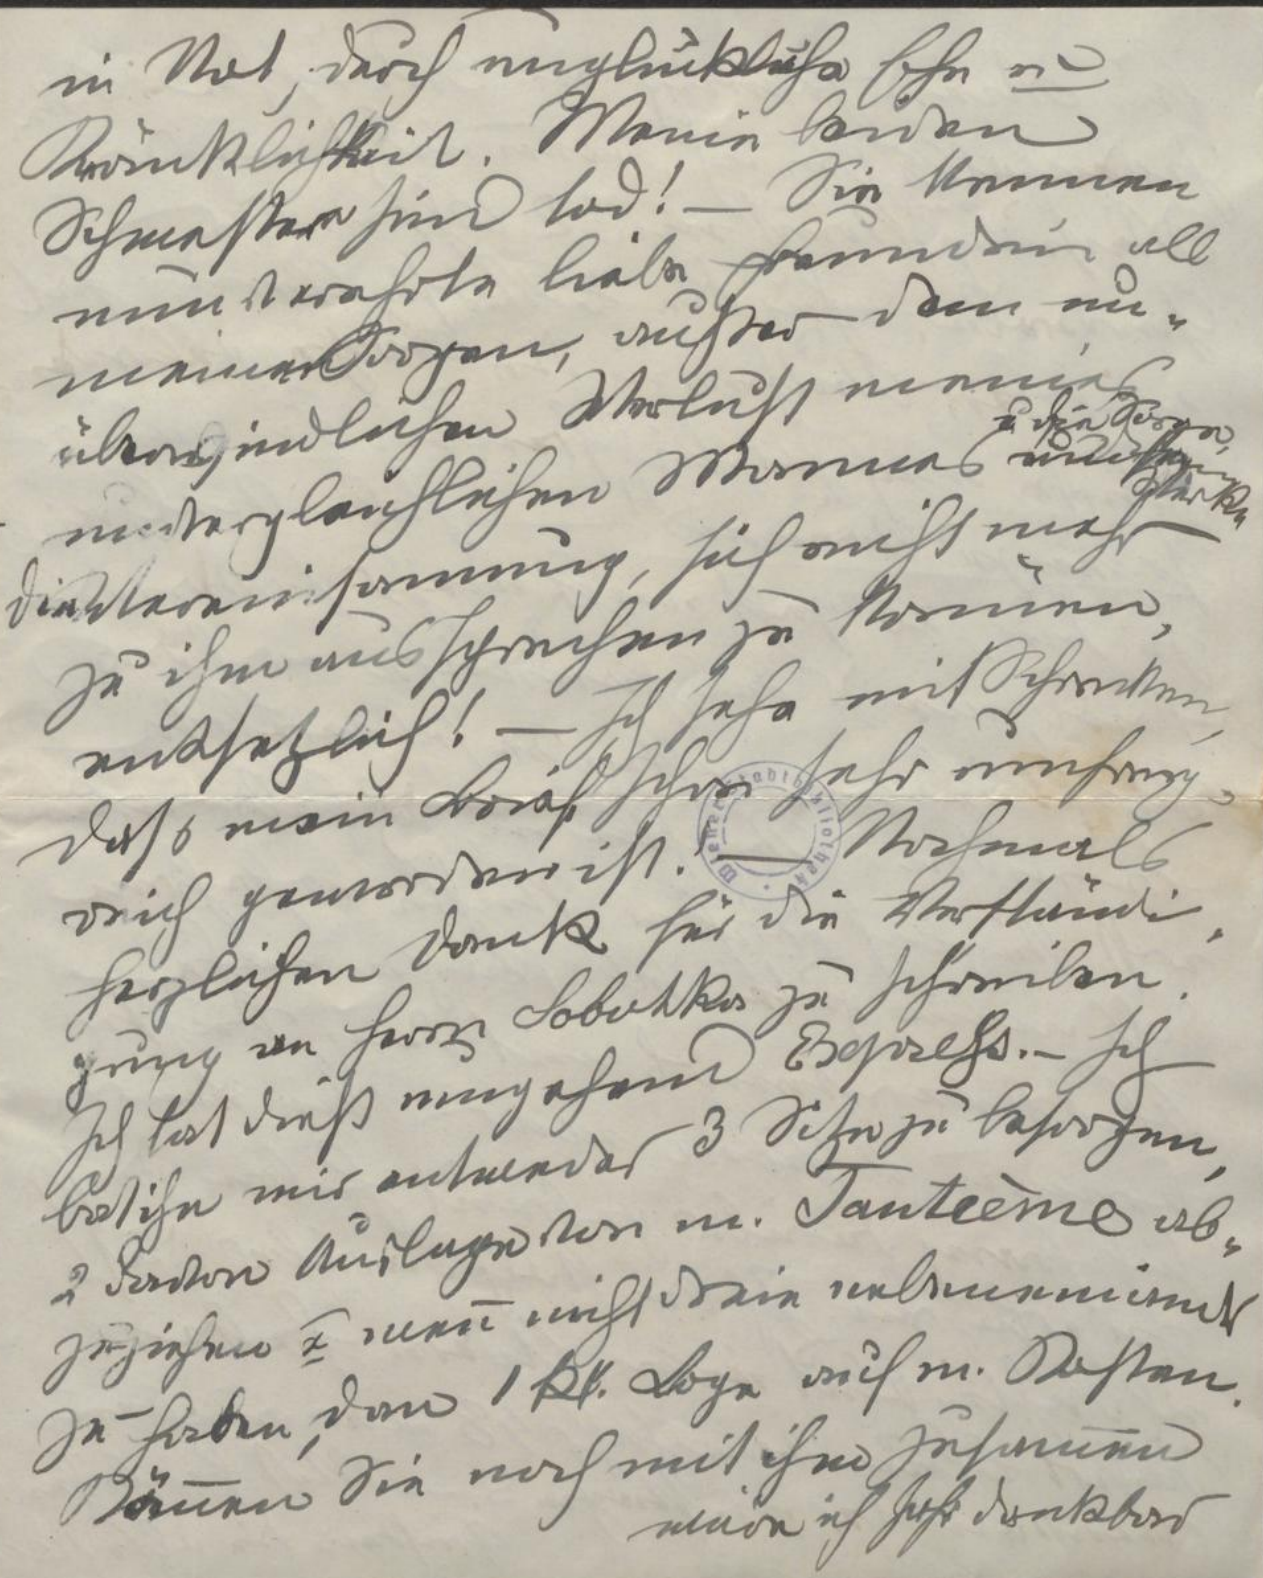 in Not, durch unglückliche Ehe u
Kränklichkeit. Meine beiden
Schwestern sind tod! — Sie kennen
nun verehrte liebe Freundin all
meine Sorgen, außer dem un-
überwindlichen Verlust meines
u die Sorge
unvergleichlichen Mannes
die Vereinsamung, sich nicht mehr
zu ihm aussprechen zu können,
entsetzlich! — Ich sehe mit Schrecken,
dass mein Brief schon sehr umfang-
reich geworden ist. — Nochmals
herzlichen Dank für die Verständi-
gung an Herrn Sobotka zu schreiben.
Ich tat dieß umgehend Express. — Ich
bat ihn mir entweder 3 Sitze zu besorgen,
2 davon Auslage von m. Tantième ab-
zuziehen u wenn nicht drei nebeneinander
zu haben, dan 1 kl. Loge auf m. Kosten.
Können Sie noch mit ihm zusammen
wäre ich sehr dankbar
Wiener Stadtbibliothek